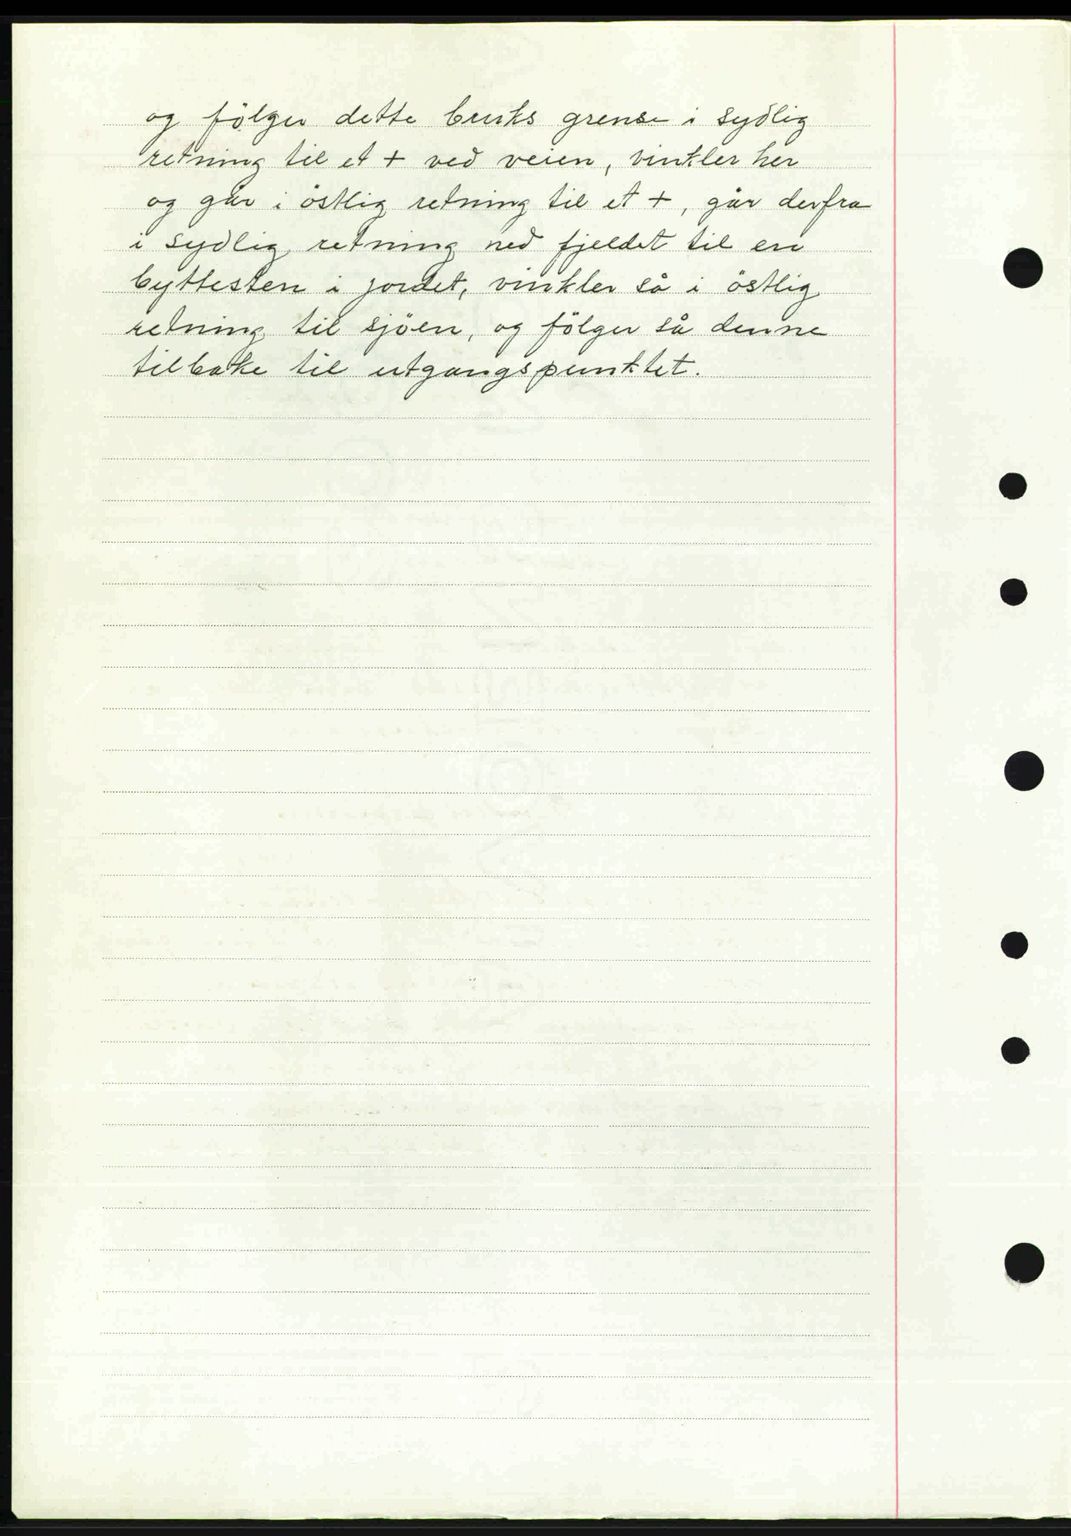 og følger dette bruks grense i sydlig
retning til et + ved veien, vinkler her
og går i østlig retning til et +, går derfra
i sydlig retning ned fjeldet til en
byttesten i jordet, vinkler så i østlig
retning til sjøen, og følger så denne
tilbake til utgangspunktet.